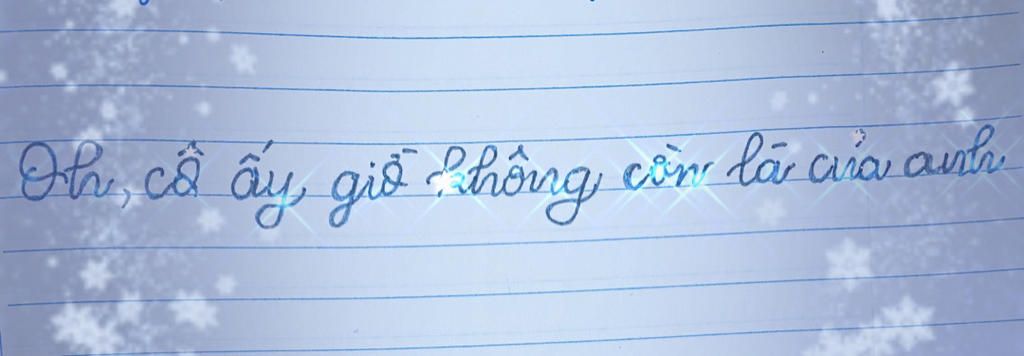 Oh, cô ấy giờ không còn là của anh